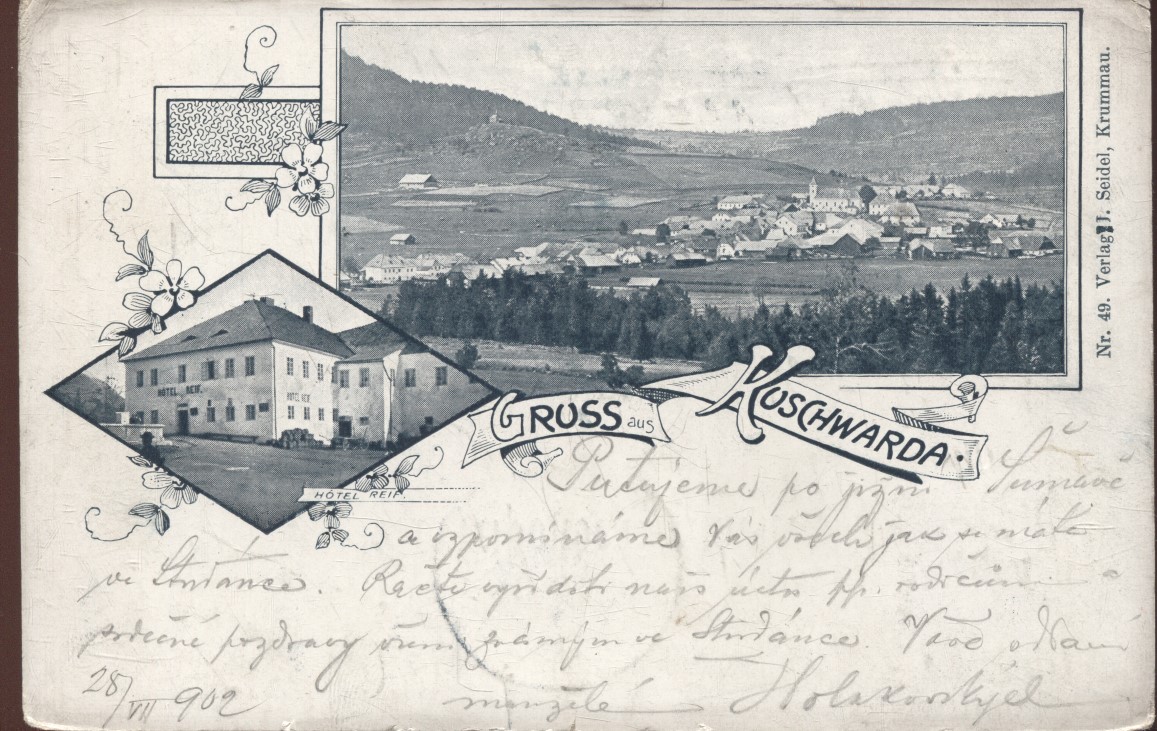 Nr. 49. Verlag J. Seidel, Krummau.
HOTEL REIF.
HOTEL REIF.
HÔTEL REIF.
GRUSS aus KUSCHWARDA.
Putujeme po jižní Šumavě
a vzpomínáme Vás všech jak se máte
ve Studánce. Račte vyřídit naši úctu pp. rodičům
srdečné pozdravy všem známým ve Studánce. oddaní
28/VII 902 manželé